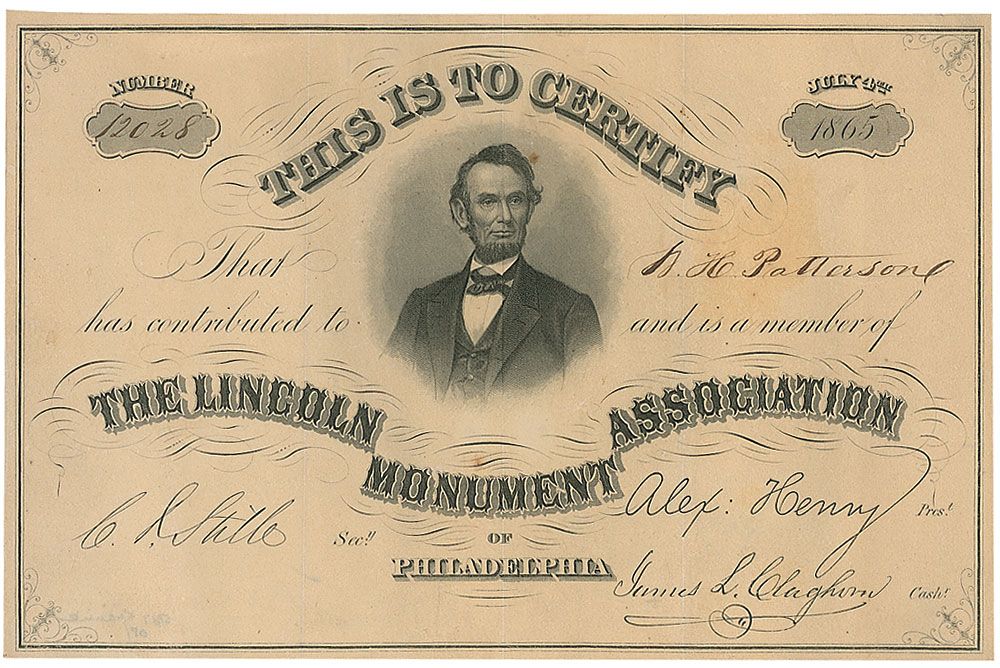 NUMBER
12028
JULY 4TH
1865
THIS IS TO CERTIFY
That H. Patterson
has contributed to and is a member of
THE LINCOLN MONUMENT ASSOCIATION
OF
PHILADELPHIA
C. J. Stille Secy
Alex: Henry Prest.
James L. Claghorn Cashr.